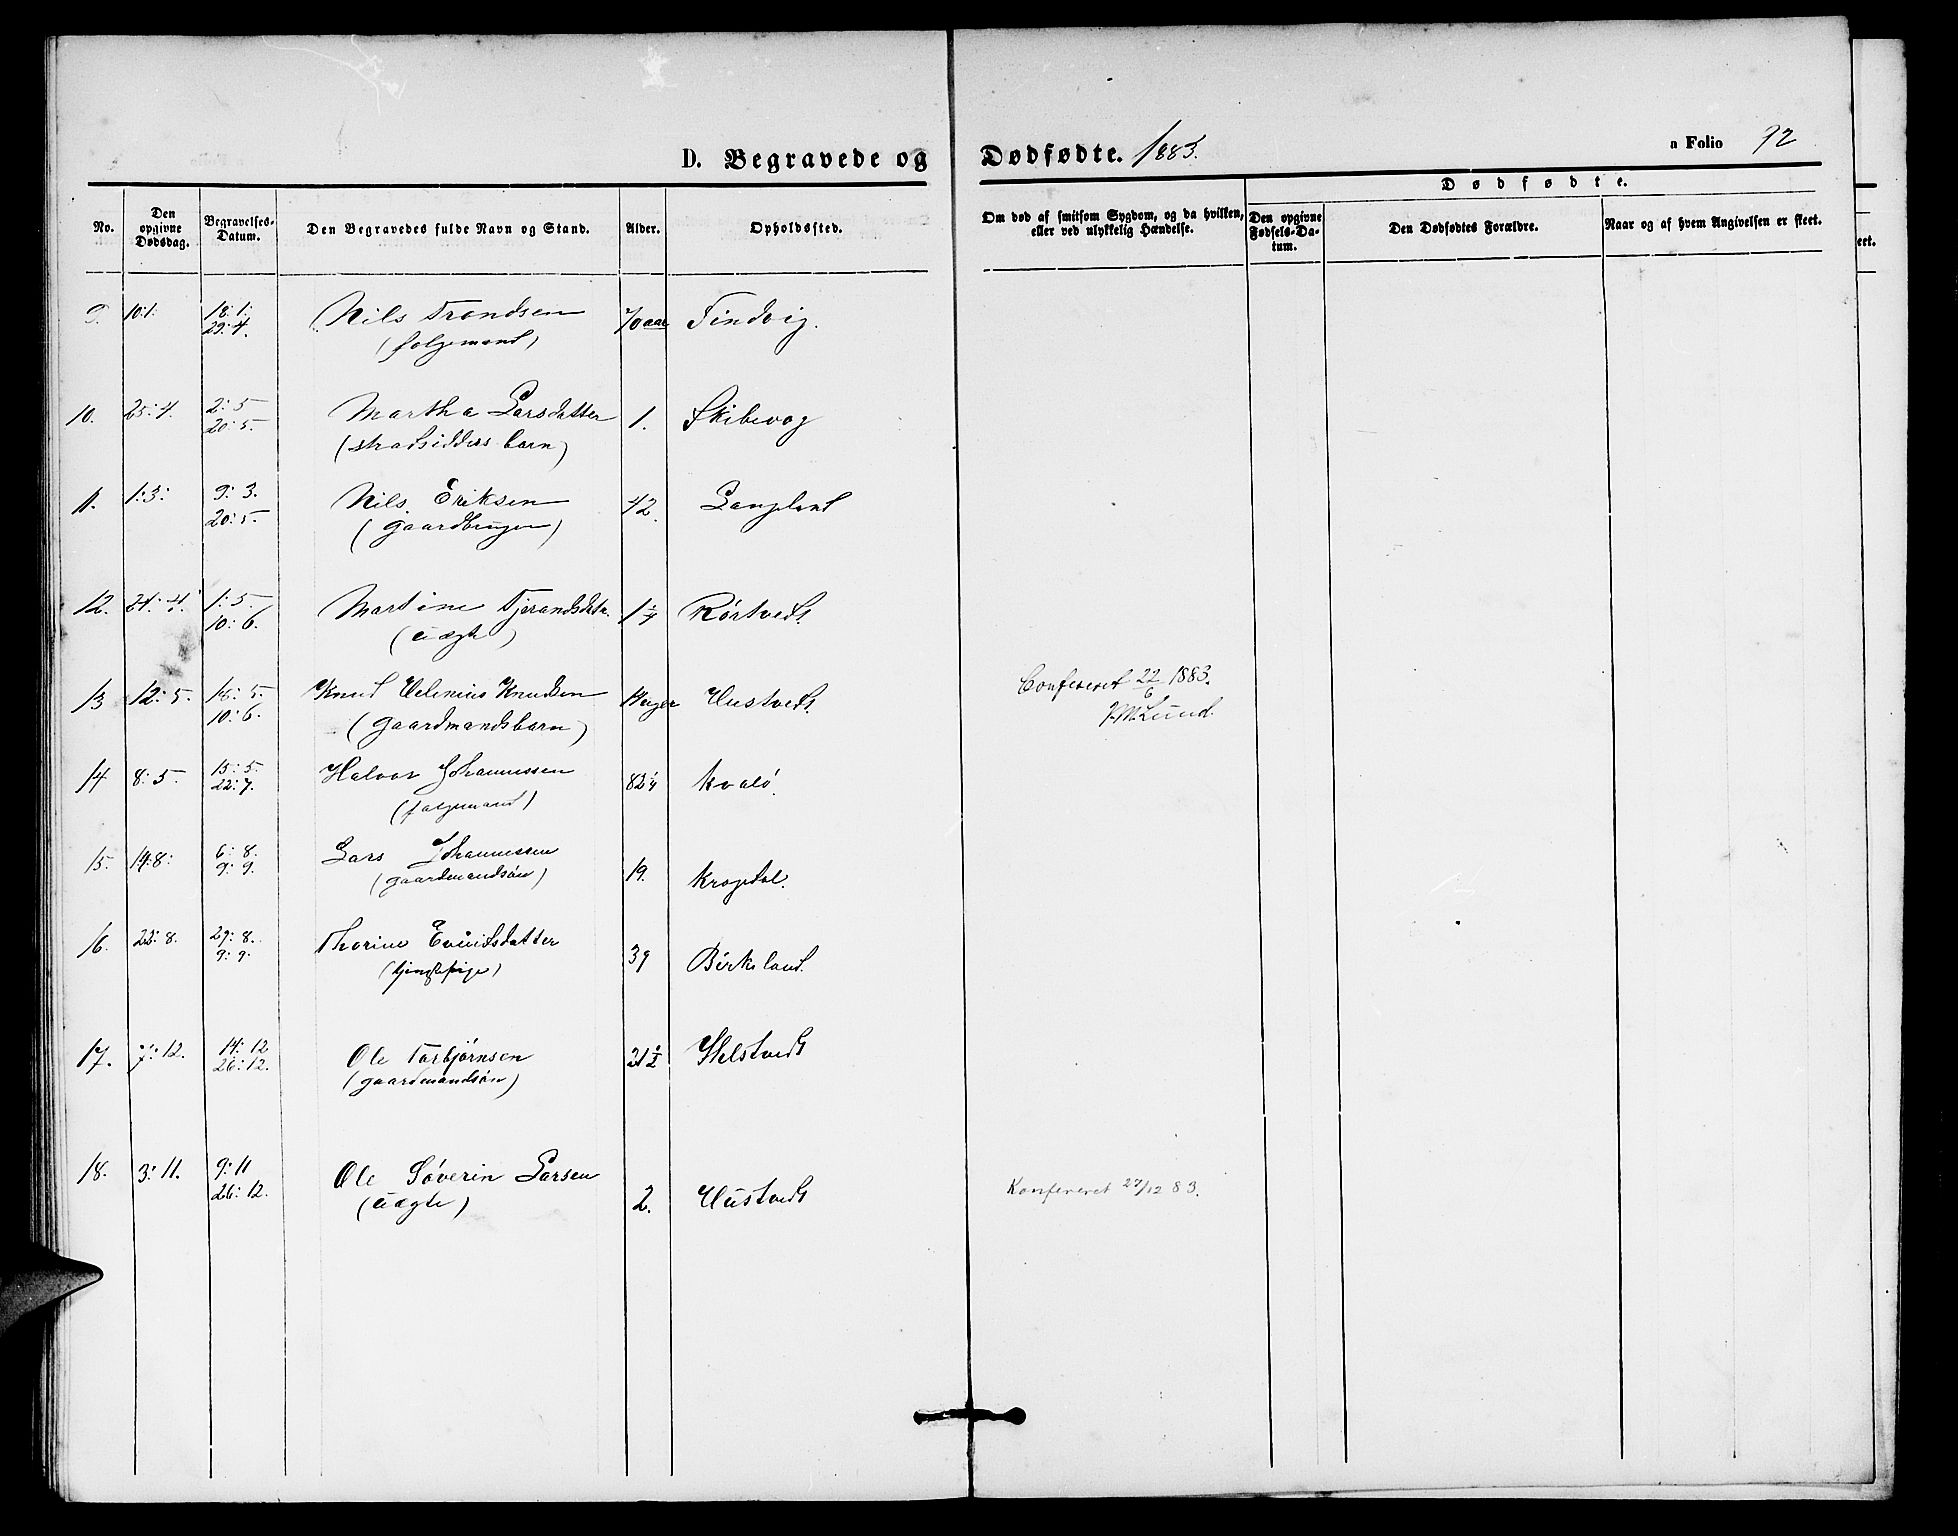 D. Begravede og Dødfødte. 1883.
a Folio 92
No.
Den opgivne Dødsdag.
Begravelses-Datum.
Den Begravedes fulde Navn og Stand.
Alder.
Opholdssted.
Om død af smitsom Sygdom, og da hvilken, eller ved ulykkelig Hændelse.
Dødfødte.
Den opgivne Fødsels-Datum.
Den Dødfødtes Forældre.
Naar og af hvem Angivelsen er skeet.
9. 10:1. 18:1: 29:4. Nils Trondsen 70 aar Tindvig.
(folgemand)
10. 25:4. 2:5 20:5. Martha Larsdatter 1. Skibevog
(strandsidders barn)
11. 1:3: 9:3. 20:5. Nils Eriksen 42. Langeland
(gaardbruger)
12. 24:4. 1:5. 10:6. Martine Tjerandsdatr. 1 1/4 Rørtvedt.
(uægte)
13 12:5. 18:5. 10:6. Knud Helenius Knudsen Hustvedt.
(gaardmandsbarn)
Confereret 22/6 1883.
J.M. Lund.
14 8:5. 15:5. 22:7. Halvor Johannessen 82 1/4 Kvalø.
(folgemand)
15. 14:8: 6:8. 9:9. Lars Johannessen 19. Krogedal.
(gaardmandsøn)
16. 22:8. 29:8. 9:9. Thorine Evindsdatter 39 Birkeland.
(tjenestepige)
17. 7:12. 14:12 26:12. Ole Torbjørnsen 21 1/2 Helstvedt
(gaardmandsøn)
18. 3:11. 9:11 26:12. Ole Søverin Larsen 2. Hustvedt
(uægte)
Konfereret 27/12 83.